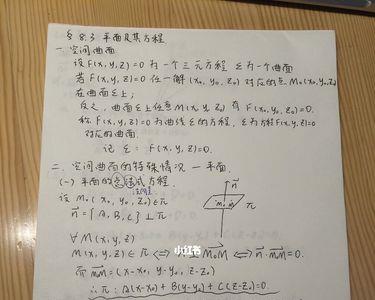 §8.3 平面及其方程
一. 空间曲面
设F(x,y,z)=0为一个三元方程 Σ为一个曲面
若F(x,y,z)=0任一解(x₀,y₀,z₀)对应的点M₀(x₀,y₀,z₀)
在曲面Σ上;
反之,曲面Σ上任意M(x,y,z)有F(x₀,y₀,z₀)=0.
称F(x,y,z)=0为曲线Σ的方程,Σ为方程F(x,y,z)=0
对应的曲面.
记Σ: F(x,y,z)=0.
二. 空间曲面的特殊情况 — 平面.
(一) 平面的点法式方程.
设M₀(x₀,y₀,z₀)∈π
n={A,B,C}⊥π
n
M₀
π
∀M(x,y,z)
M(x,y,z)∈π⟺n⊥M₀M⟺n·M₀M=0.
小红书
而M₀M=(x-x₀,y-y₀,z-z₀)
∴π: A(x-x₀)+B(y-y₀)+C(z-z₀)=0.